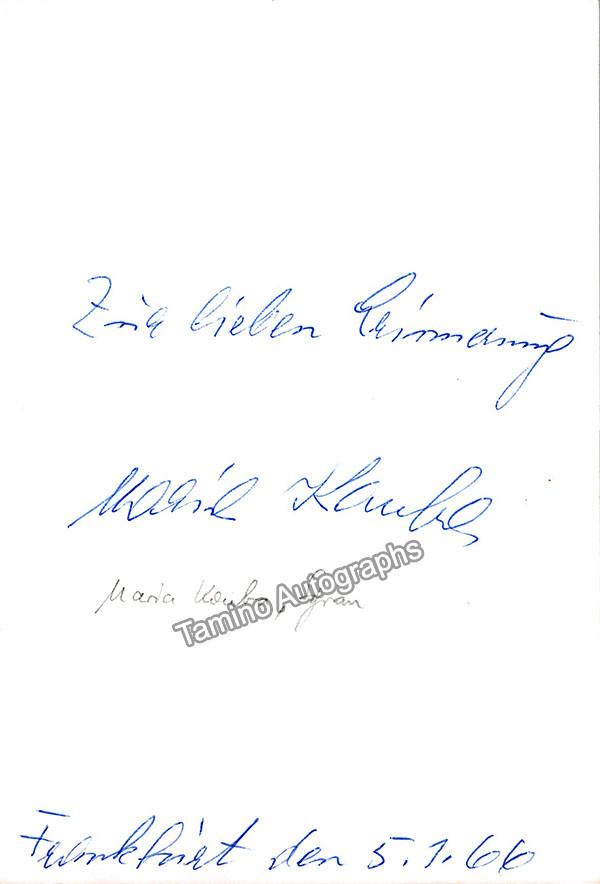 Zur lieben Erinnerung
Maria Kouba
Maria Kouba, Sopran
Tamino Autographs
Frankfurt den 5.1.66